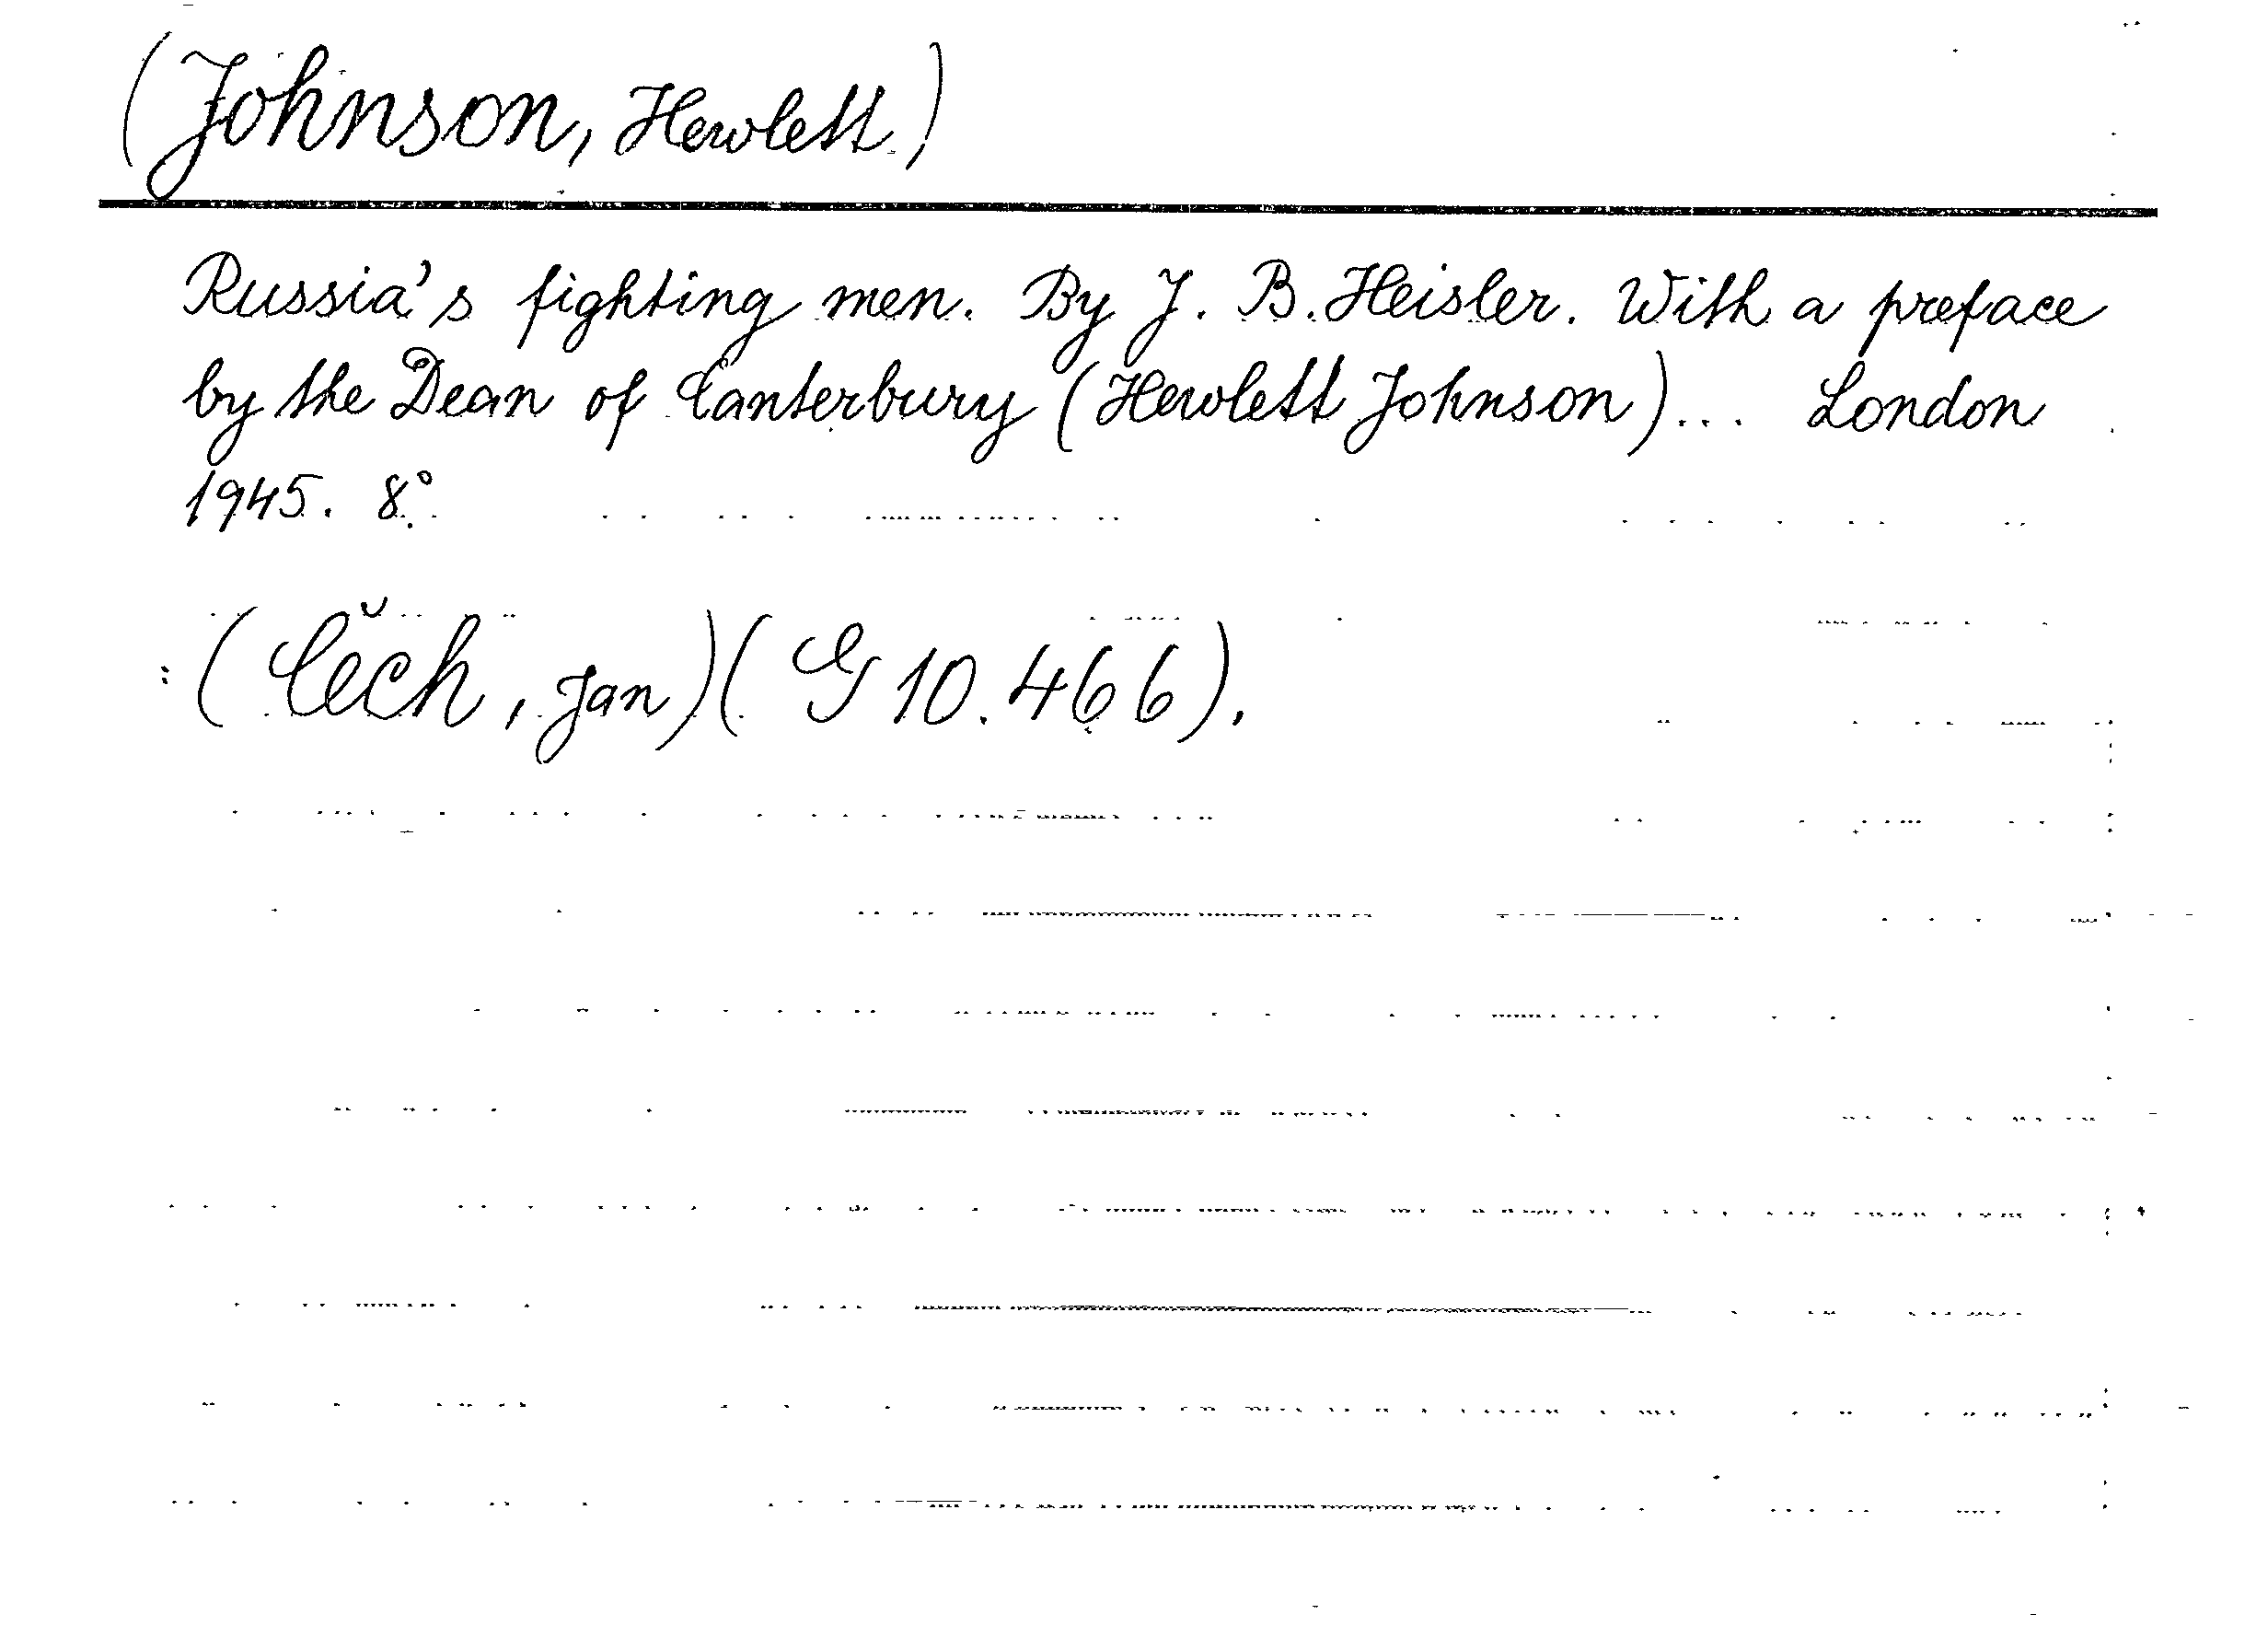 (Johnson, Hewlett.)
Russia's fighting men. By J. B. Heisler. With a preface
by the Dean of Canterbury (Hewlett Johnson)... London
1945. 8°.
(Čech, Jan) (G 10.466).